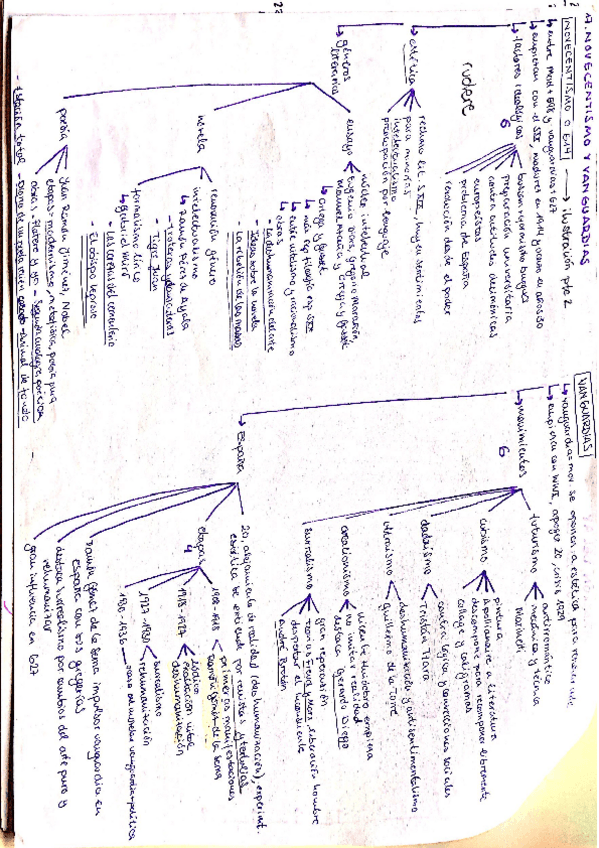 A. NOVECENTISMO Y VANGUARDIAS
NOVECENTISMO O G14 → ilustración pte 2
↳ entre Mod + G98 y vanguardias + G27
↳ empiezan con el SXX, maduros en 1914 y viven en años 30
↳ factores ideológicos
6
buscan reformismo burgués
preparación universitaria
contra actitudes decimónicas
europeístas
problema de España
revolución desde el poder
rudere
↳ estética
rechazo lit. SXIX, huyen sentimientos
para minorías
intelectualismo
preocupación por lenguaje
↳ géneros literarios
ensayo
núcleo intelectual
eugenio Dors, Gregorio Marañón,
Manuel Azaña y Ortega y Gasset
↳ Ortega y Gasset
↳ más imp filosofía esp SXX
↳ entre vitalismo y racionalismo
↳ obras
- La deshumanización del arte
- Ideas sobre la novela
- La rebelión de las masas
novela
renovación género
intelectualismo
↳ Ramón Pérez de Ayala
- Troteras y danzaderas
- Tigre Juan
formalismo lírico
↳ Gabriel Miró
- Las cerezas del cementerio
- El obispo leproso
poesía
Juan Ramón Jiménez, Nobel
etapas: modernismo, metafísica, poesía pura
obras: Platero y yo - Segunda antología poética
- Estación total - Diario de un poeta recién casado - Animal de fondo
VANGUARDIAS
↳ vanguardias = mov se oponen a estética para renovar arte
↳ empieza con WWI, apogeo 20, crisis 1929
↳ movimientos
6
futurismo
antirromántico
mecánica y técnica
Marinetti
cubismo
pintura
Apollinaire → literatura
descomponer para recomponer libremente
collage y caligramas
dadaísmo
contra lógica y convenciones sociales
Tristán Tzara
ultraísmo
deshumanización y antisentimentalismo
Guillermo de la Torre
creacionismo
Vicente Huidobro empieza
no imitar realidad
destaca Gerardo Diego
surrealismo
gran repercusión
teorías Freud y Marx, liberación hombre
despertar el inconsciente
André Bretón
↳ españa
20, alejamiento de realidad (deshumanización), experiment.
estética se extiende por revistas y tertulias
etapas
4
1908-1918
primeras manifestaciones
Ramón Gómez de la Serna
1918-1927
lúdico
exaltación vital
deshumanización
1927-1930
surrealismo
rehumanización
1930-1936
Ramón Gómez de la Serna impulsor vanguardia en
españa con sus greguerías
destaca surrealismo por cambios del arte puro y
rehumanizar
gran influencia en G27